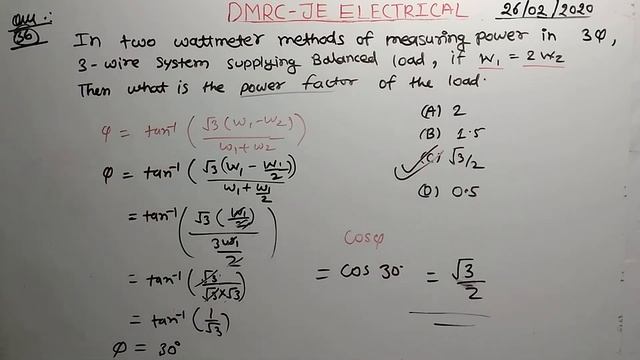 Ques:
36
DMRC-JE ELECTRICAL 26/02/2020
In two wattmeter methods of measuring power in 3φ,
3-wire system supplying Balanced load, if W₁ = 2W₂
Then what is the power factor of the load.
(A) 2
(B) 1.5
(C) √3/2
(D) 0.5
φ = tan⁻¹ (√3 (W₁-W₂) / W₁+W₂)
φ = tan⁻¹ (√3 (W₁ - W₁/2) / W₁ + W₁/2)
= tan⁻¹ (√3 (W₁/2) / 3W₁/2)
= tan⁻¹ (√3 / √3×√3)
= tan⁻¹ (1/√3)
φ = 30°
Cosφ
= cos 30° = √3/2